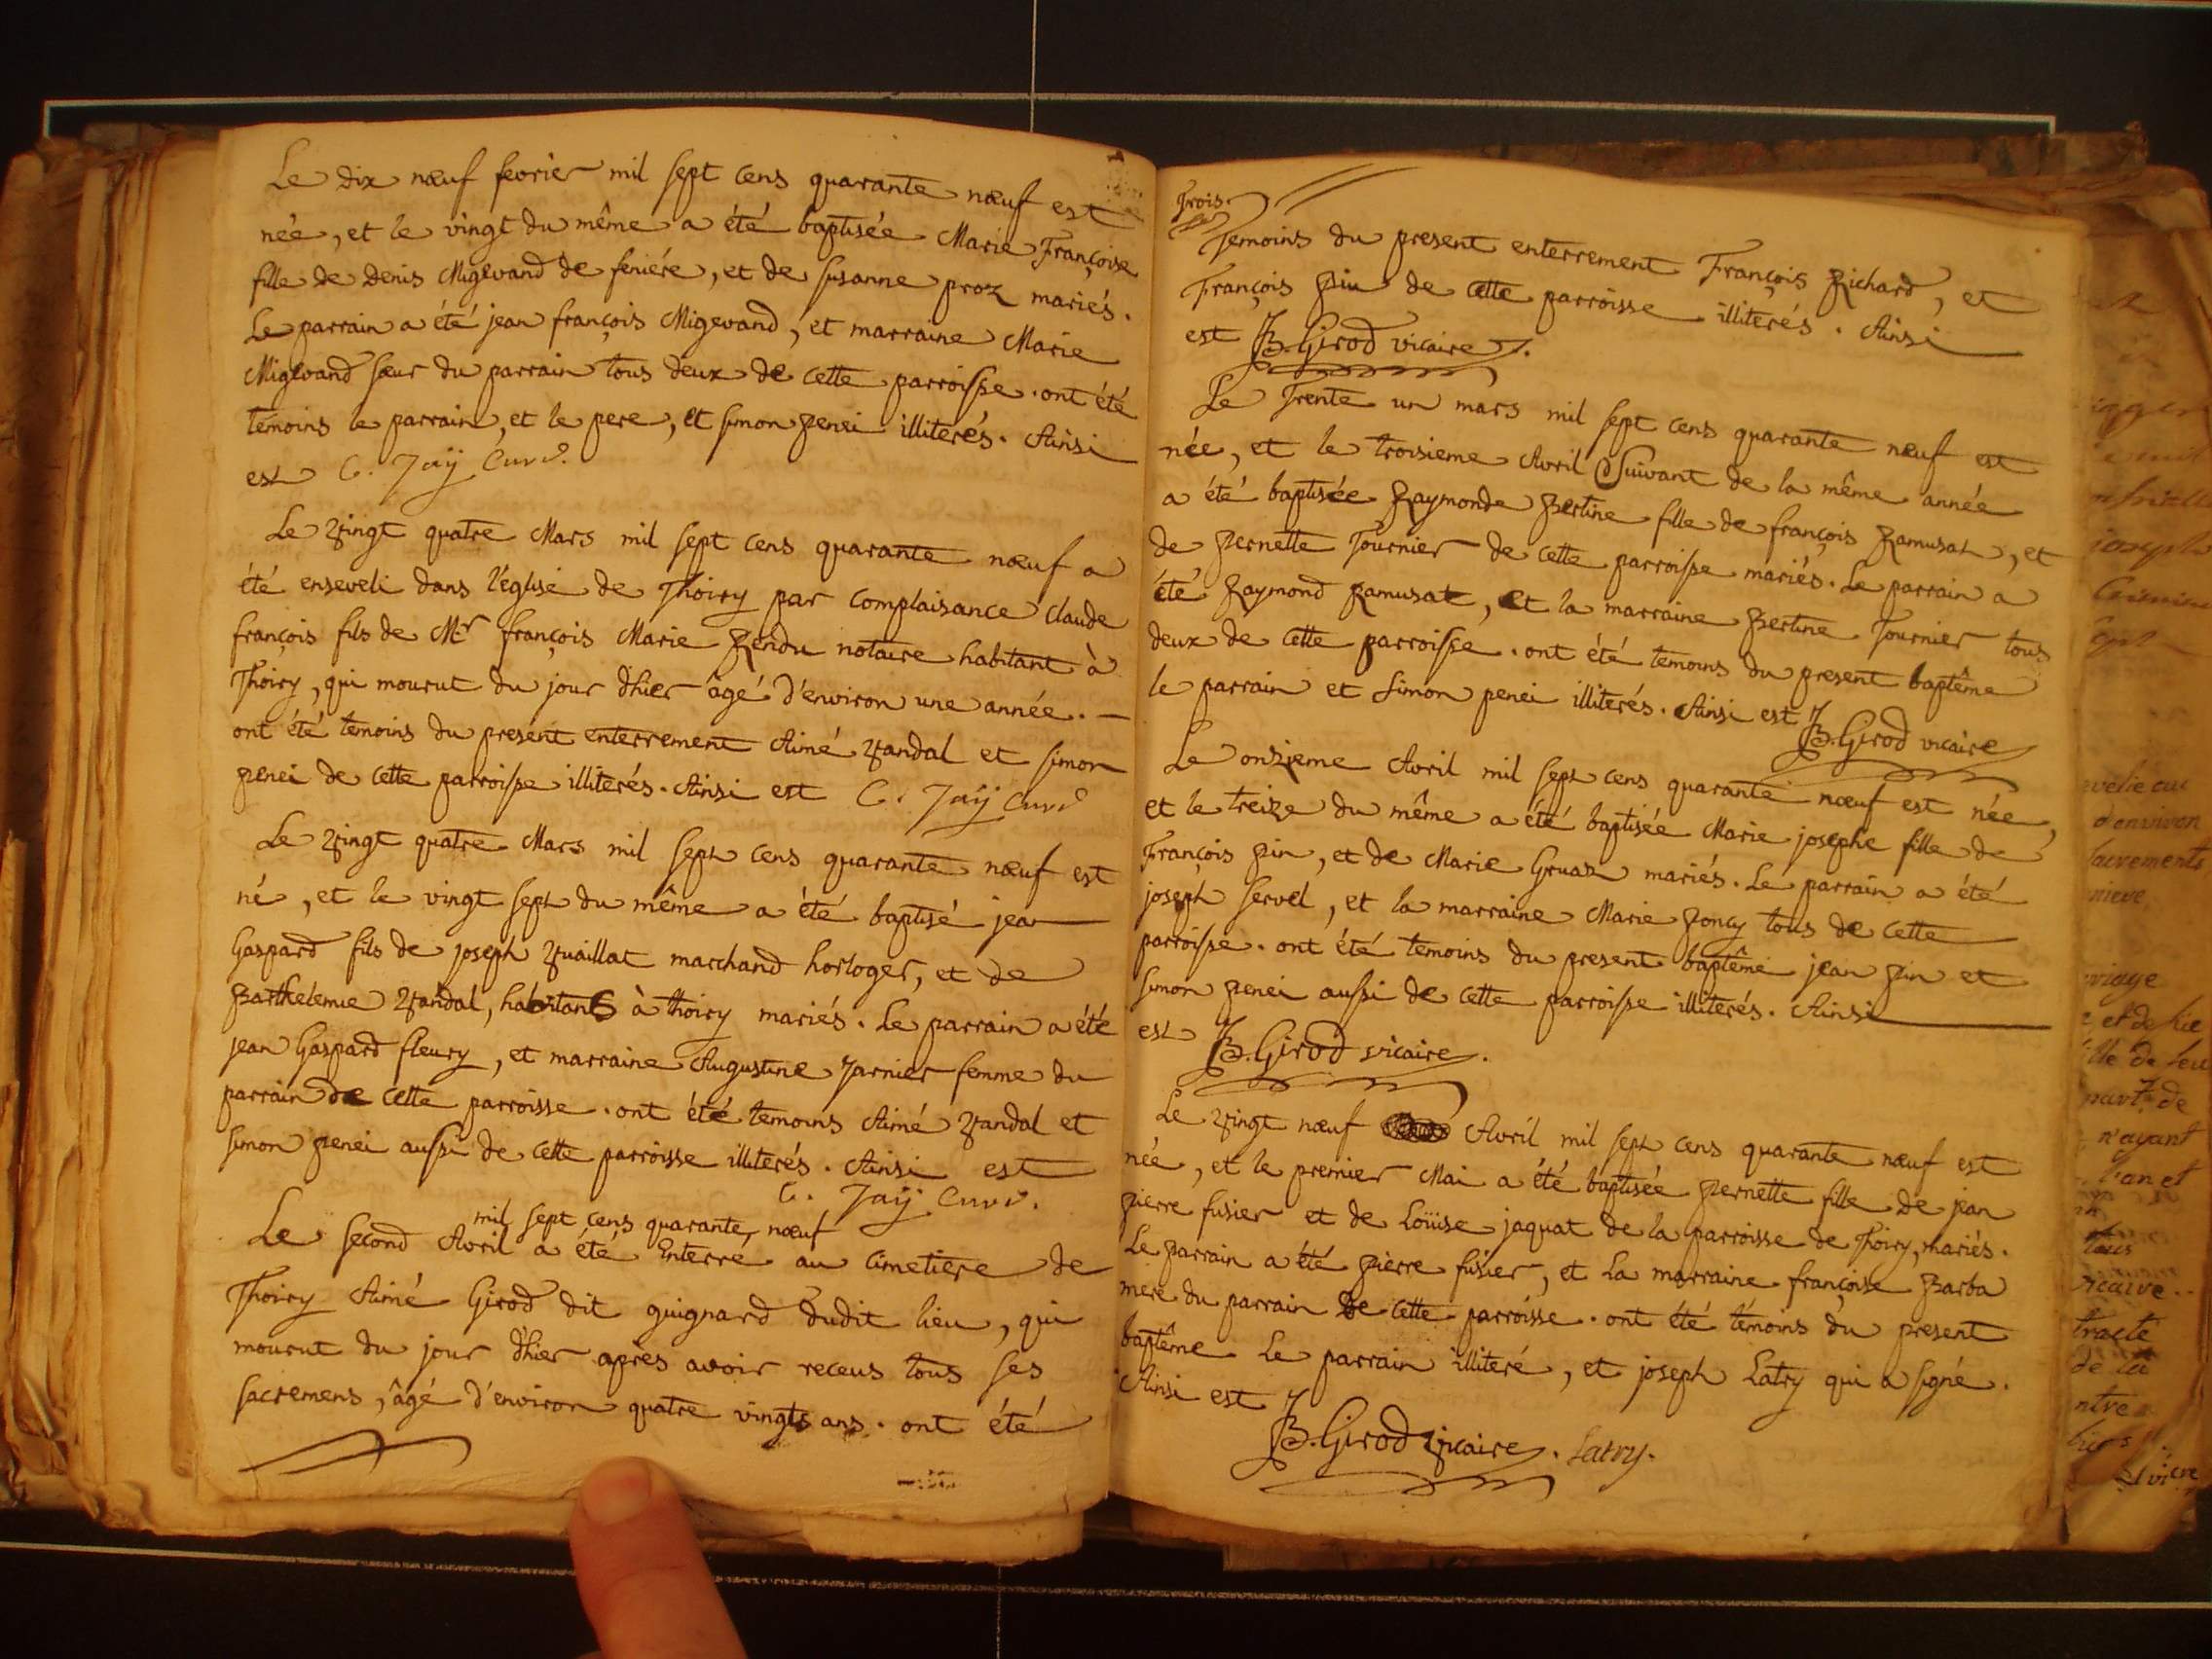 Le dix nœuf fevrier mil sept cens quarante nœuf est
née, et le vingt du même a été baptisée Marie Françoise
fille de Denis Migevand de feniére, et de susanne proz mariés.
Le parrain a été jean françois Migevand, et marraine Marie
Migevand sœur du parrain tous deux de cette parroisse. ont été
temoins le parrain, et le pere, et simon penei illiterés. Ainsi
est C. Jaÿ Curé.
Le Vingt quatre Mars mil sept cens quarante nœuf a
été enseveli dans l'église de Thoiry par complaisance claude
françois fils de Mr françois Marie Rendu notaire habitant à
Thoiry, qui mourut du jour d'hier âgé d'environ une année. —
ont été temoins du present enterrement Aimé Vandal et simon
penei de cette parroisse illiterés. Ainsi est C. Jaÿ Curé
Le Vingt quatre Mars mil sept cens quarante nœuf est
né, et le vingt sept du même a été baptisé jean
Gaspard fils de joseph Vuaillat marchand horloger, et de
Barthelemie Vandal, habitans à thoiry mariés. Le parrain a été
jean Gaspard fleury, et marraine Augustine Jarnier femme du
parrain de cette parroisse. ont été temoins Aimé Vandal et
simon penei aussi de cette parroisse illiterés. Ainsi est
C. Jaÿ Curé.
mil sept cens quarante nœuf
Le second Avril a été Enterré au cimetiere de
Thoiry Aimé Girod dit guignard dudit lieu, qui
mourut du jour d'hier après avoir receus tous ses
sacremens, âgé d'environ quatre vingts ans. ont été
Trois.
Temoins du present enterrement François Richard, et
François Pin de cette parroisse illiterés. Ainsi
est JB. Girod vicaire.
Le Trente un mars mil sept cens quarante nœuf est
née, et le troisieme Avril Suivant de la même année
a été baptisée Raymonde Bertine fille de françois Ramusat, et
de Pernette Tournier de cette parroisse mariés. Le parrain a
été Raymond Ramusat, et la marraine Bertine Tournier tous
deux de cette parroisse. ont été temoins du present baptême
le parrain et simon penei illiterés. Ainsi est JB. Girod vicaire
Le onzieme Avril mil sept cens quarante nœuf est née,
et le treize du même a été baptisée Marie josephe fille de
François Pin, et de Marie Gruaz mariés. Le parrain a été
joseph servel, et la marraine Marie Poncy tous de cette
parroisse. ont été temoins du present baptême jean Pin et
simon Penei aussi de cette parroisse illiterés. Ainsi
est JB. Girod vicaire.
Le Vingt nœuf Avril mil sept cens quarante nœuf est
née, et le premier Mai a été baptisée Pernette fille de jean
pierre fusier et de Loüise jaquat de la parroisse de Thoiry, mariés.
Le parrain a été Pierre fusier, et La marraine françoise Barba
mere du parrain de cette parroisse. ont été témoins du present
baptême Le parrain illiteré, et joseph Latry qui a signé.
Ainsi est
JB. Girod Vicaire. Latry.
joseph
d'environ
nieve
et de
de
n'ayant
l'an et
tous
vicaire
de la